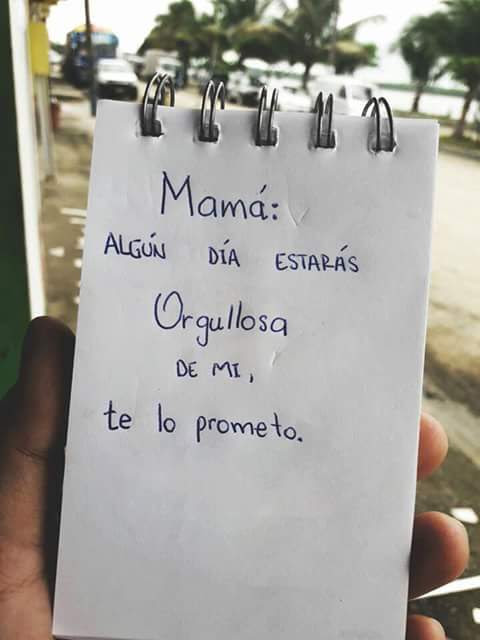 Mamá:
ALGÚN DÍA ESTARÁS
Orgullosa
DE MI,
te lo prometo.